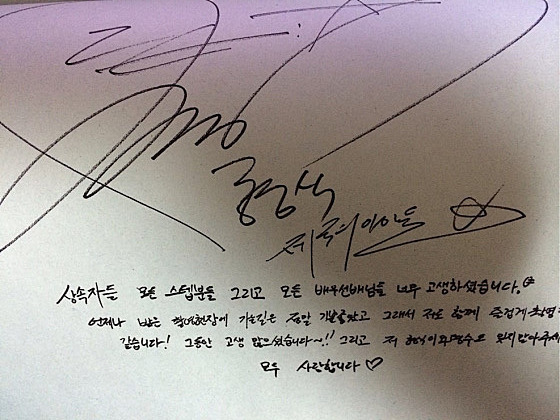 형식
제국의아이들
상속자들 모든 스텝분들 그리고 모든 배우선배님들 너무 고생하셨습니다.
언제나 밝은 촬영현장에 가는길은 정말 기분좋았고 그래서 저도 함께 즐겁게 촬영
같습니다! 그동안 고생 많으셨습니다~!! 그리고 저 잊지말아주세
모두 사랑합니다 ♡